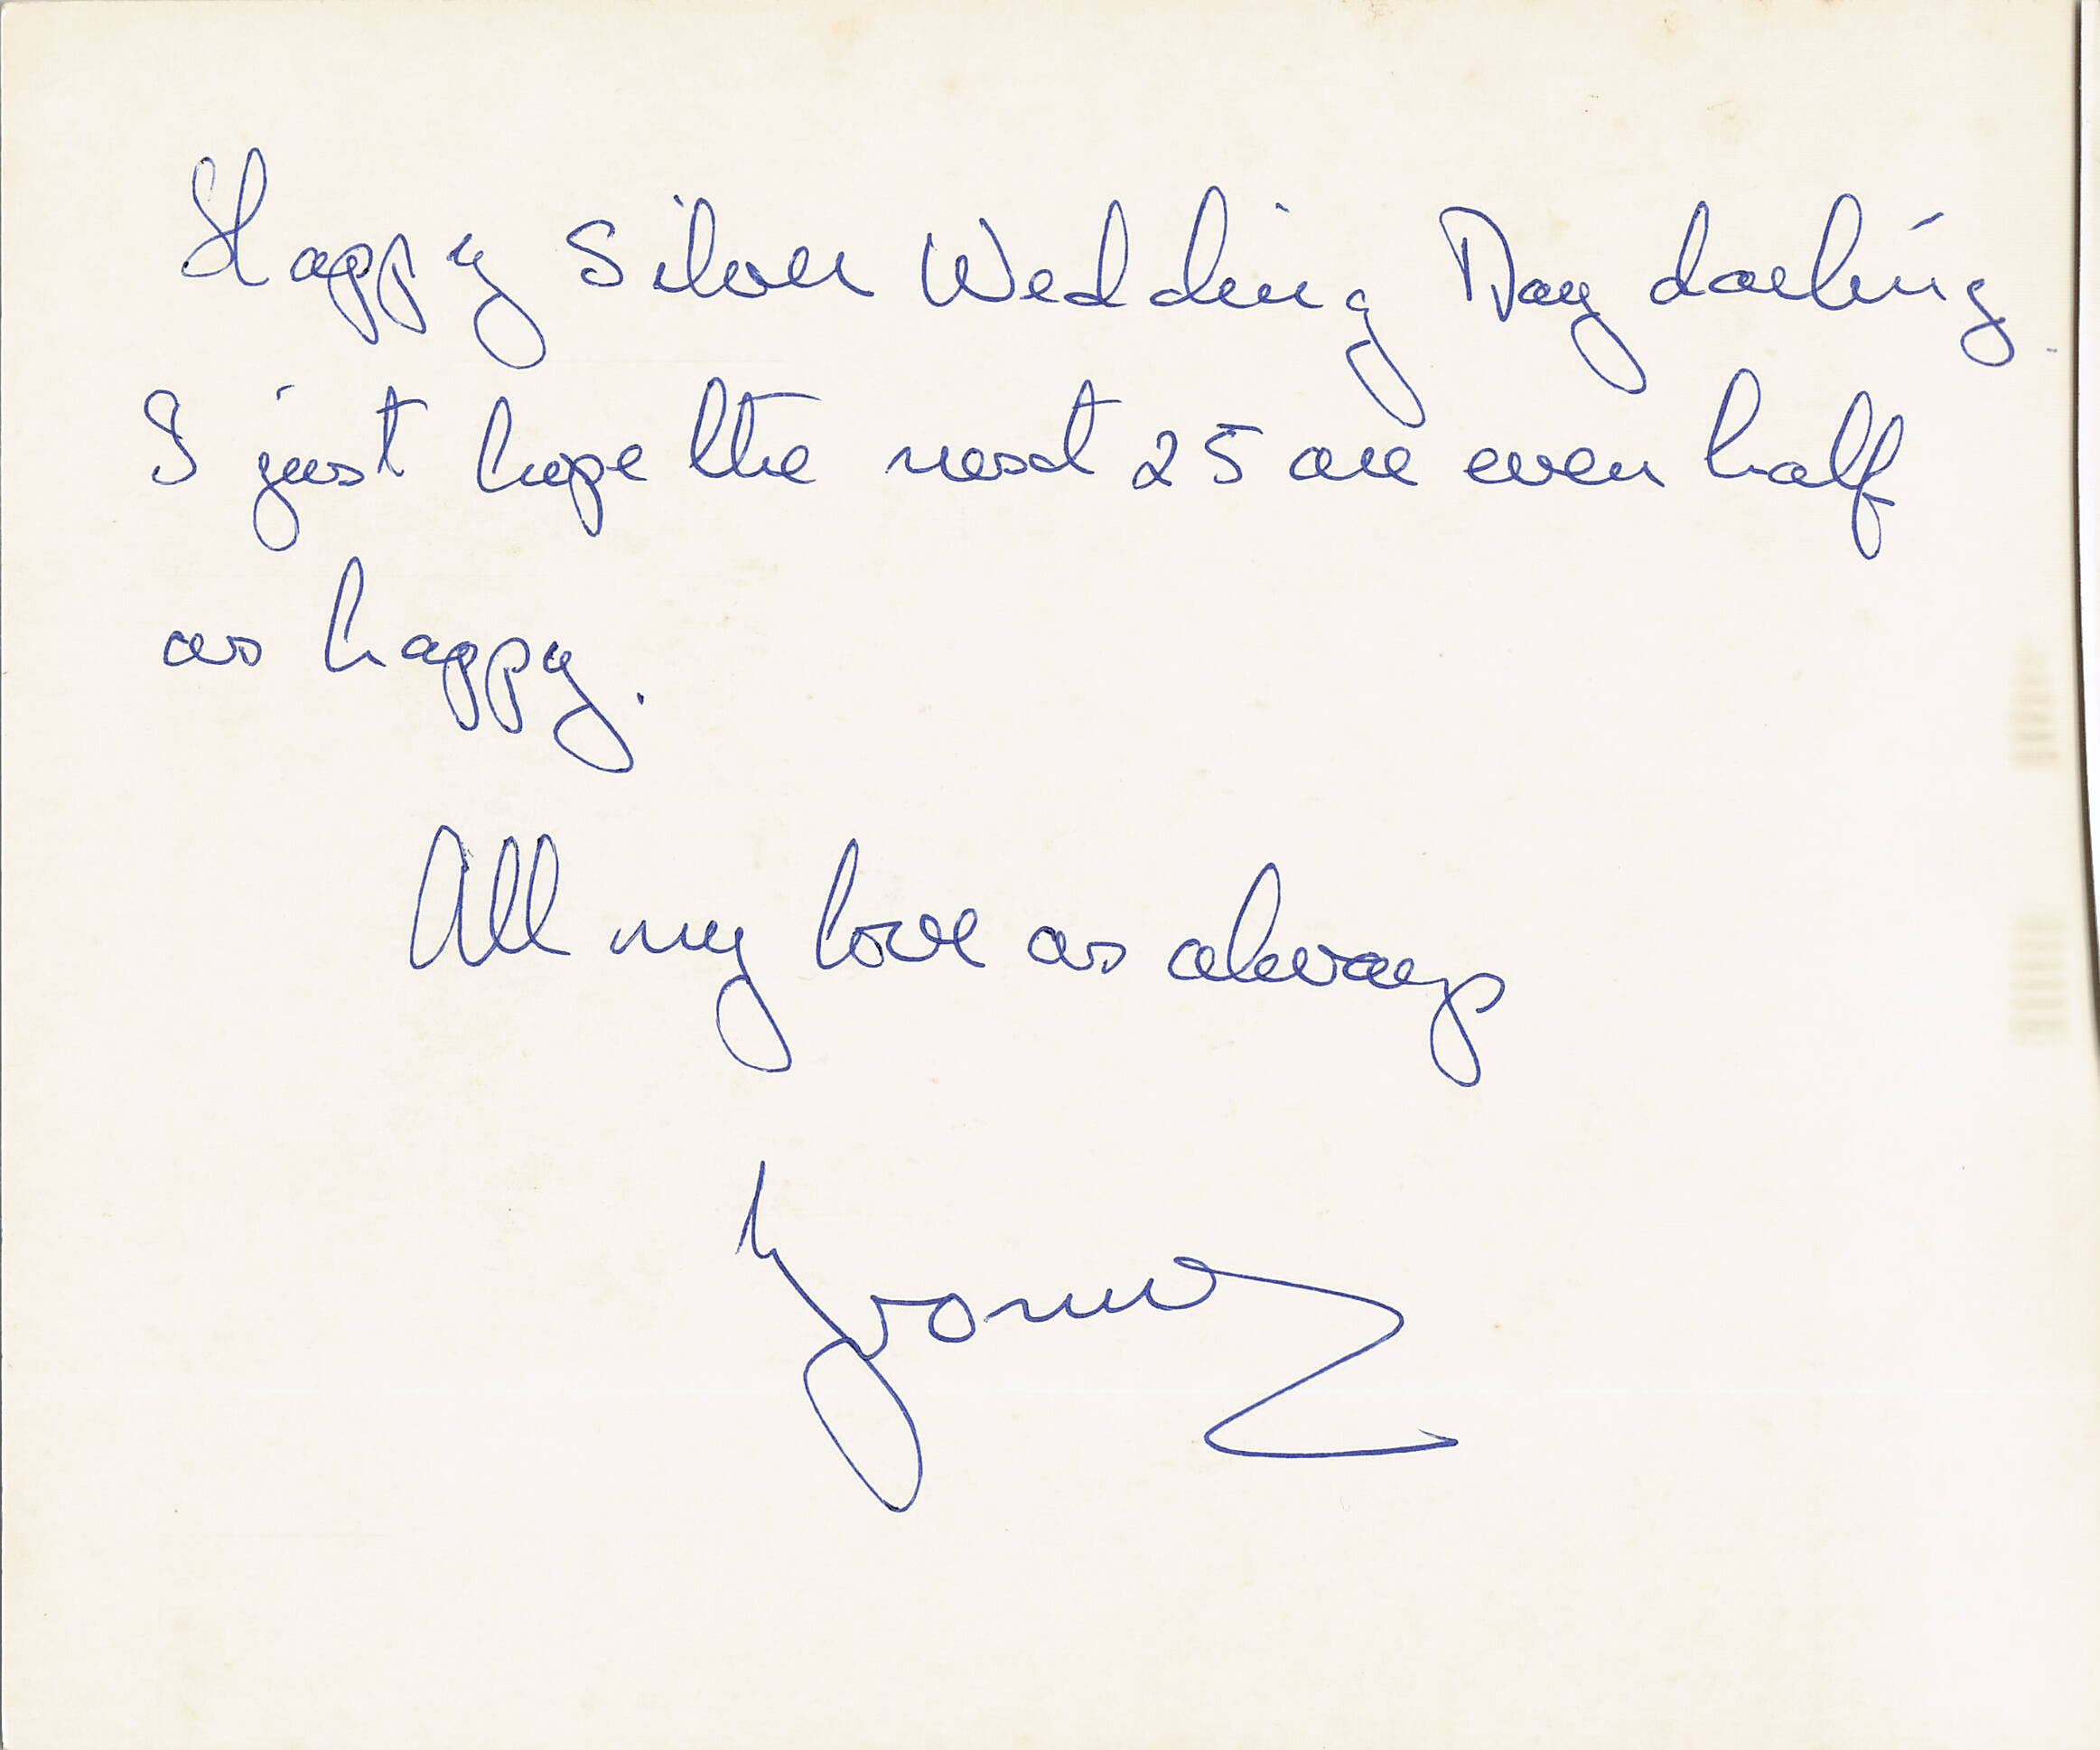 Happy Silver Wedding Day darling.
I just hope the next 25 are even half
as happy.
All my love as always
Yvonne